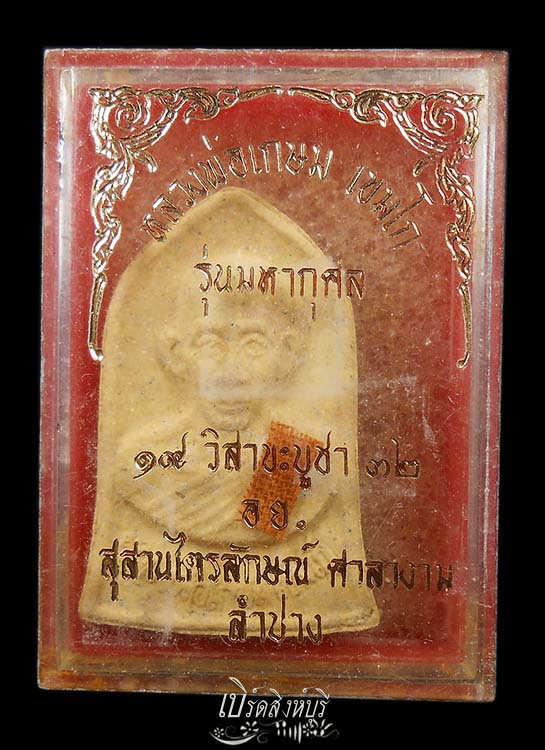 หลวงพ่อเกษม เขมโก
รุ่นมหากุศล
๑๙ วิสาขะบูชา ๓๒
อ.ย.
สุสานไตรลักษณ์ ศาลางาม
ลำปาง
เปิร์ดสิงห์บุรี